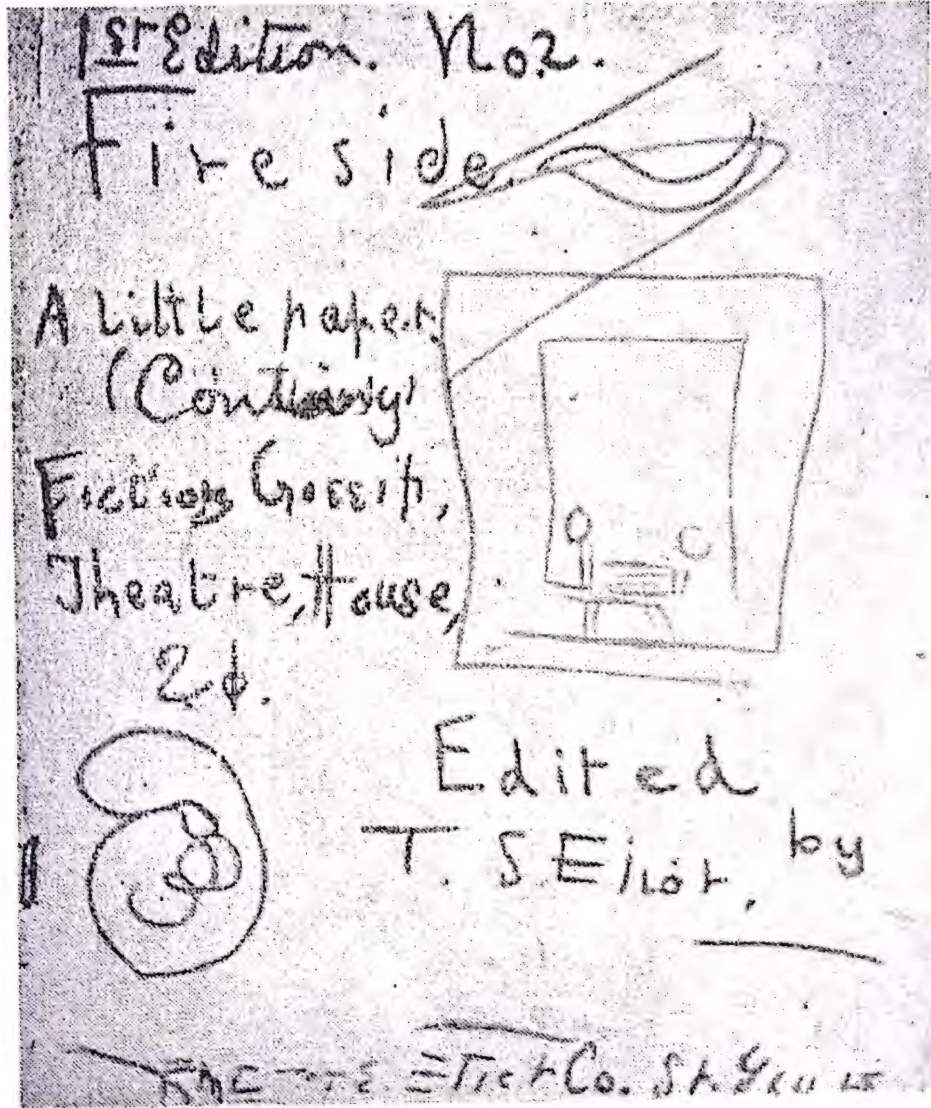 1st Edition. No2.
Fireside.
A Little paper
(Containing)
Fiction Gossip,
Theatre, House,
2¢.
Edited
by
T. S Eliot.
Co. St.